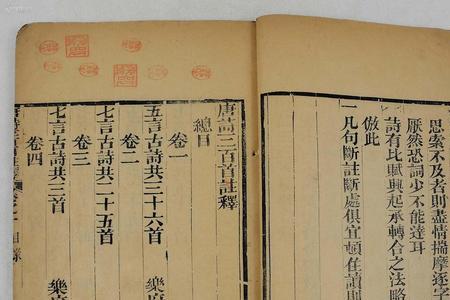 思索不及者則盡情揣摩逐字
厭然恐詞少不能達耳
詩有比賦興起承轉合之法略
倣此
一凡句斷註斷處俱宜頓住讀則
唐詩三百首註釋
總目
卷一
五言古詩共三十六首 樂府
卷二
七言古詩共二十五首
卷三
七言古詩共三首 樂府
卷四
目錄